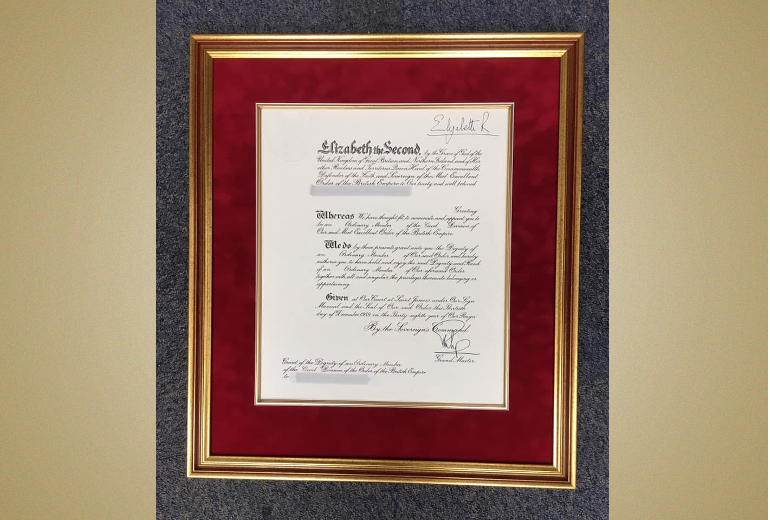 Elizabeth R
Elizabeth the Second, by the Grace of God of the
United Kingdom of Great Britain and Northern Ireland and of Her
other Realms and Territories Queen, Head of the Commonwealth,
Defender of the Faith and Sovereign of the Most Excellent
Order of the British Empire to Our trusty and well beloved
Greeting
Whereas We have thought fit to nominate and appoint you to
be an Ordinary Member of the Civil Division of
Our said Most Excellent Order of the British Empire
We do by these presents grant unto you the Dignity of
an Ordinary Member of Our said Order and hereby
authorise you to have hold and enjoy the said Dignity and Rank
of an Ordinary Member of Our aforesaid Order
together with all and singular the privileges thereunto belonging or
appertaining.
Given at Our Court at Saint James's under Our Sign
Manual and the Seal of Our said Order this Thirtieth
day of December 1989 in the Thirty-eighth year of Our Reign
By the Sovereign's Command.
Grand Master.
Grant of the Dignity of an Ordinary Member
of the Civil Division of the Order of the British Empire
to